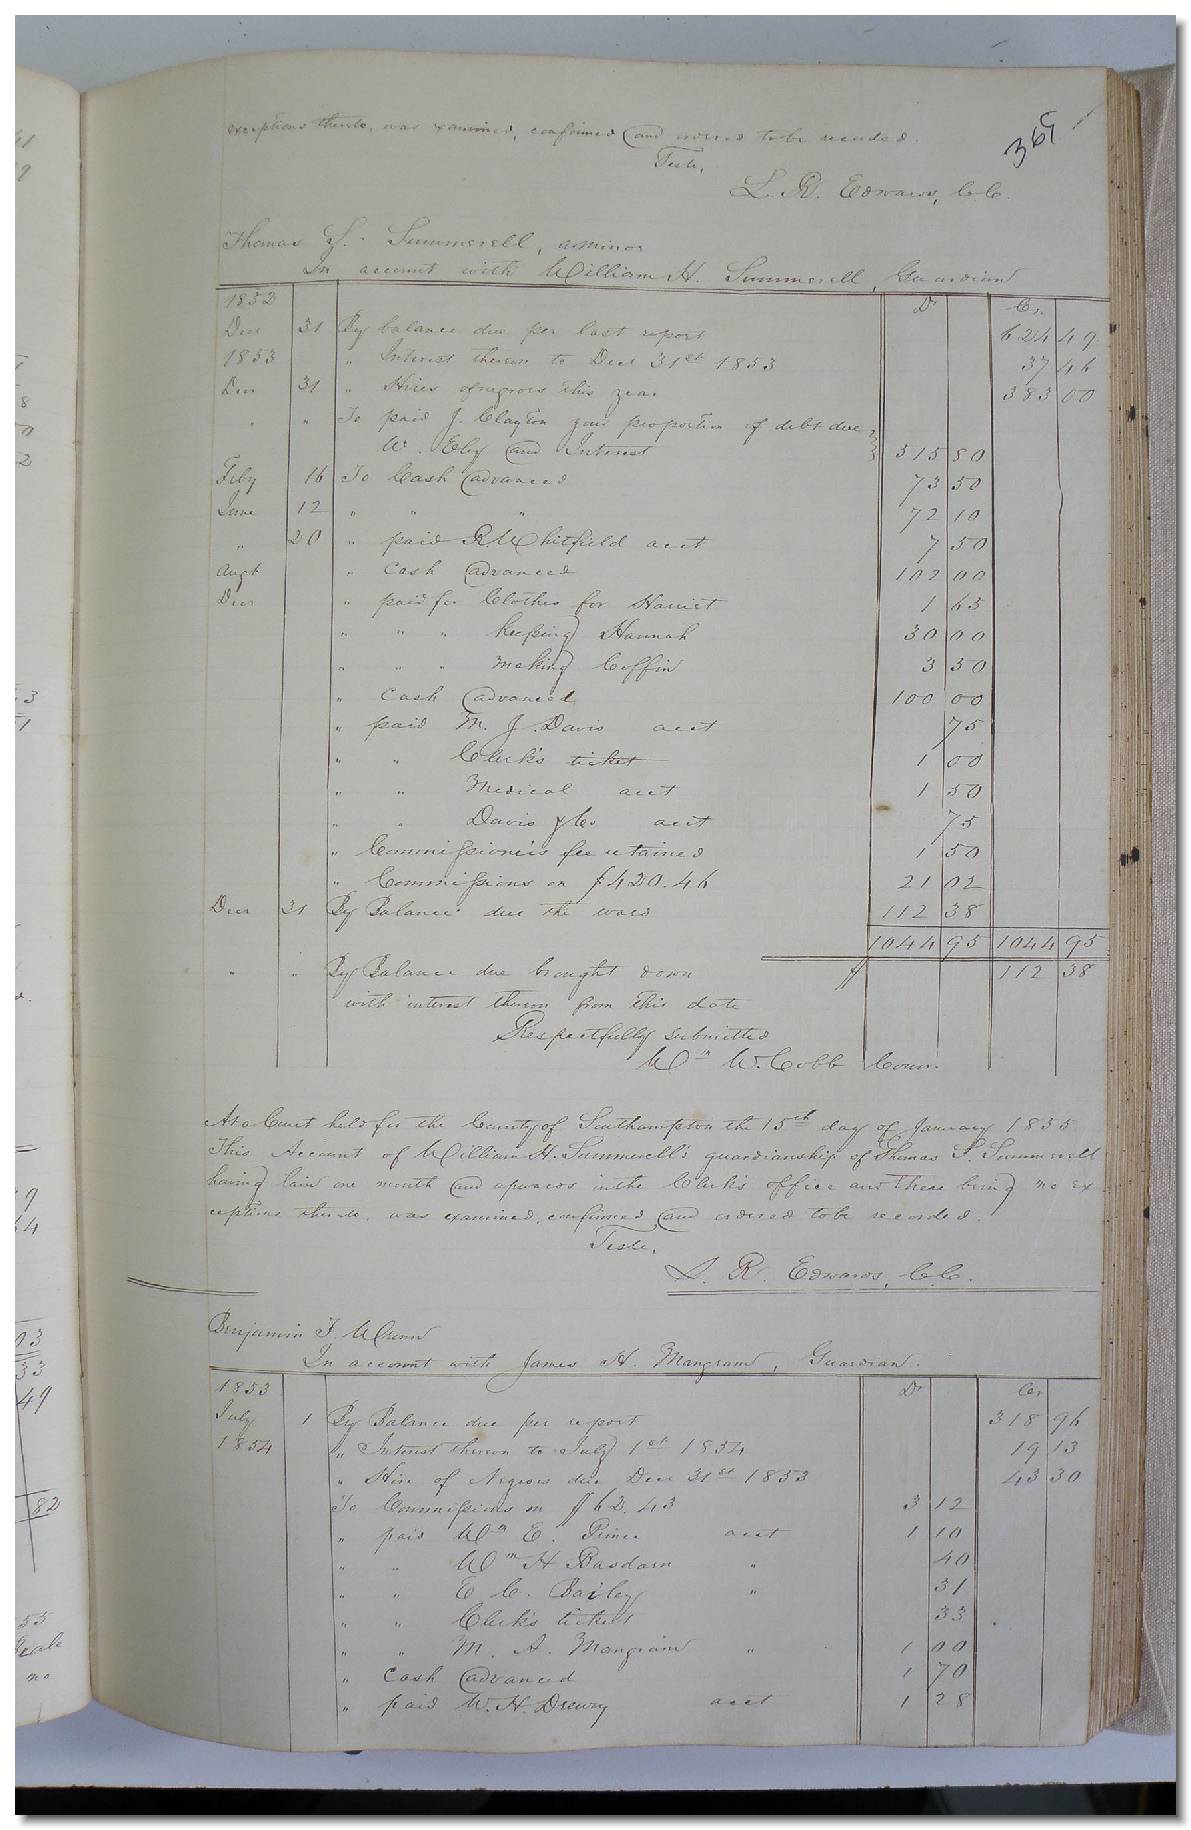 exceptions thereto, was examined, confirmed and ordered to be recorded.
365
Teste,
L. R. Edwards, C.C.
Thomas S. Summerell, a minor
In account with William H. Summerell, Guardian
1852 Dr Cr.
Decr 31 By balance due per last report 624 49
1853 " Interest thereon to Decr 31st 1853 37 46
Decr 31 " Hires of negroes this year 383 00
" " To paid J. Clayton your proportion of debt due
W. Eley and Interest 515 80
Feby 16 To Cash advanced 73 50
June 12 " " " 72 10
" 20 " paid R. Whitfield acct 7 50
Augt " Cash advanced 102 00
Decr " paid for Clothes for Harriet 1 65
" " " keeping Hannah 30 00
" " " making Coffin 3 50
" Cash advanced 100 00
" paid M. J. Davis acct 75
" " Clerk's ticket 1 00
" " Medical acct 1 50
" " Davis & Co acct 75
" Commissioner's fee retained 1 50
" Commissions on $420.46 21 02
Decr 31 By Balance due the ward 112 38
1044 95 1044 95
" " By Balance due brought down $ 112 38
with interest thereon from this date
Respectfully submitted
Wm W. Cobb Comr.
At a Court held for the County of Southampton the 15th day of January 1855
This Account of William H. Summerell's guardianship of Thomas S. Summerell
having lain one month and upwards in the Clerk's office and there being no ex
ceptions thereto, was examined, confirmed and ordered to be recorded.
Teste,
L. R. Edwards, C.C.
Benjamin F.
In account with James H. Mangram, Guardian.
1853 Dr Cr
July 1 By Balance due per report 318 96
1854 " Interest thereon to July 1st 1854 19 13
" Hire of Negroes due Decr 31st 1853 43 30
To Commissions on $62.43 3 12
" paid Wm E. Prince acct 1 10
" " Wm H Barham " 40
" " E C. Bailey " 31
" " Clerk's ticket 33
" " M. A. Mangram " 1 00
" Cash advanced 1 70
" paid W. H. Drewry acct 1 28